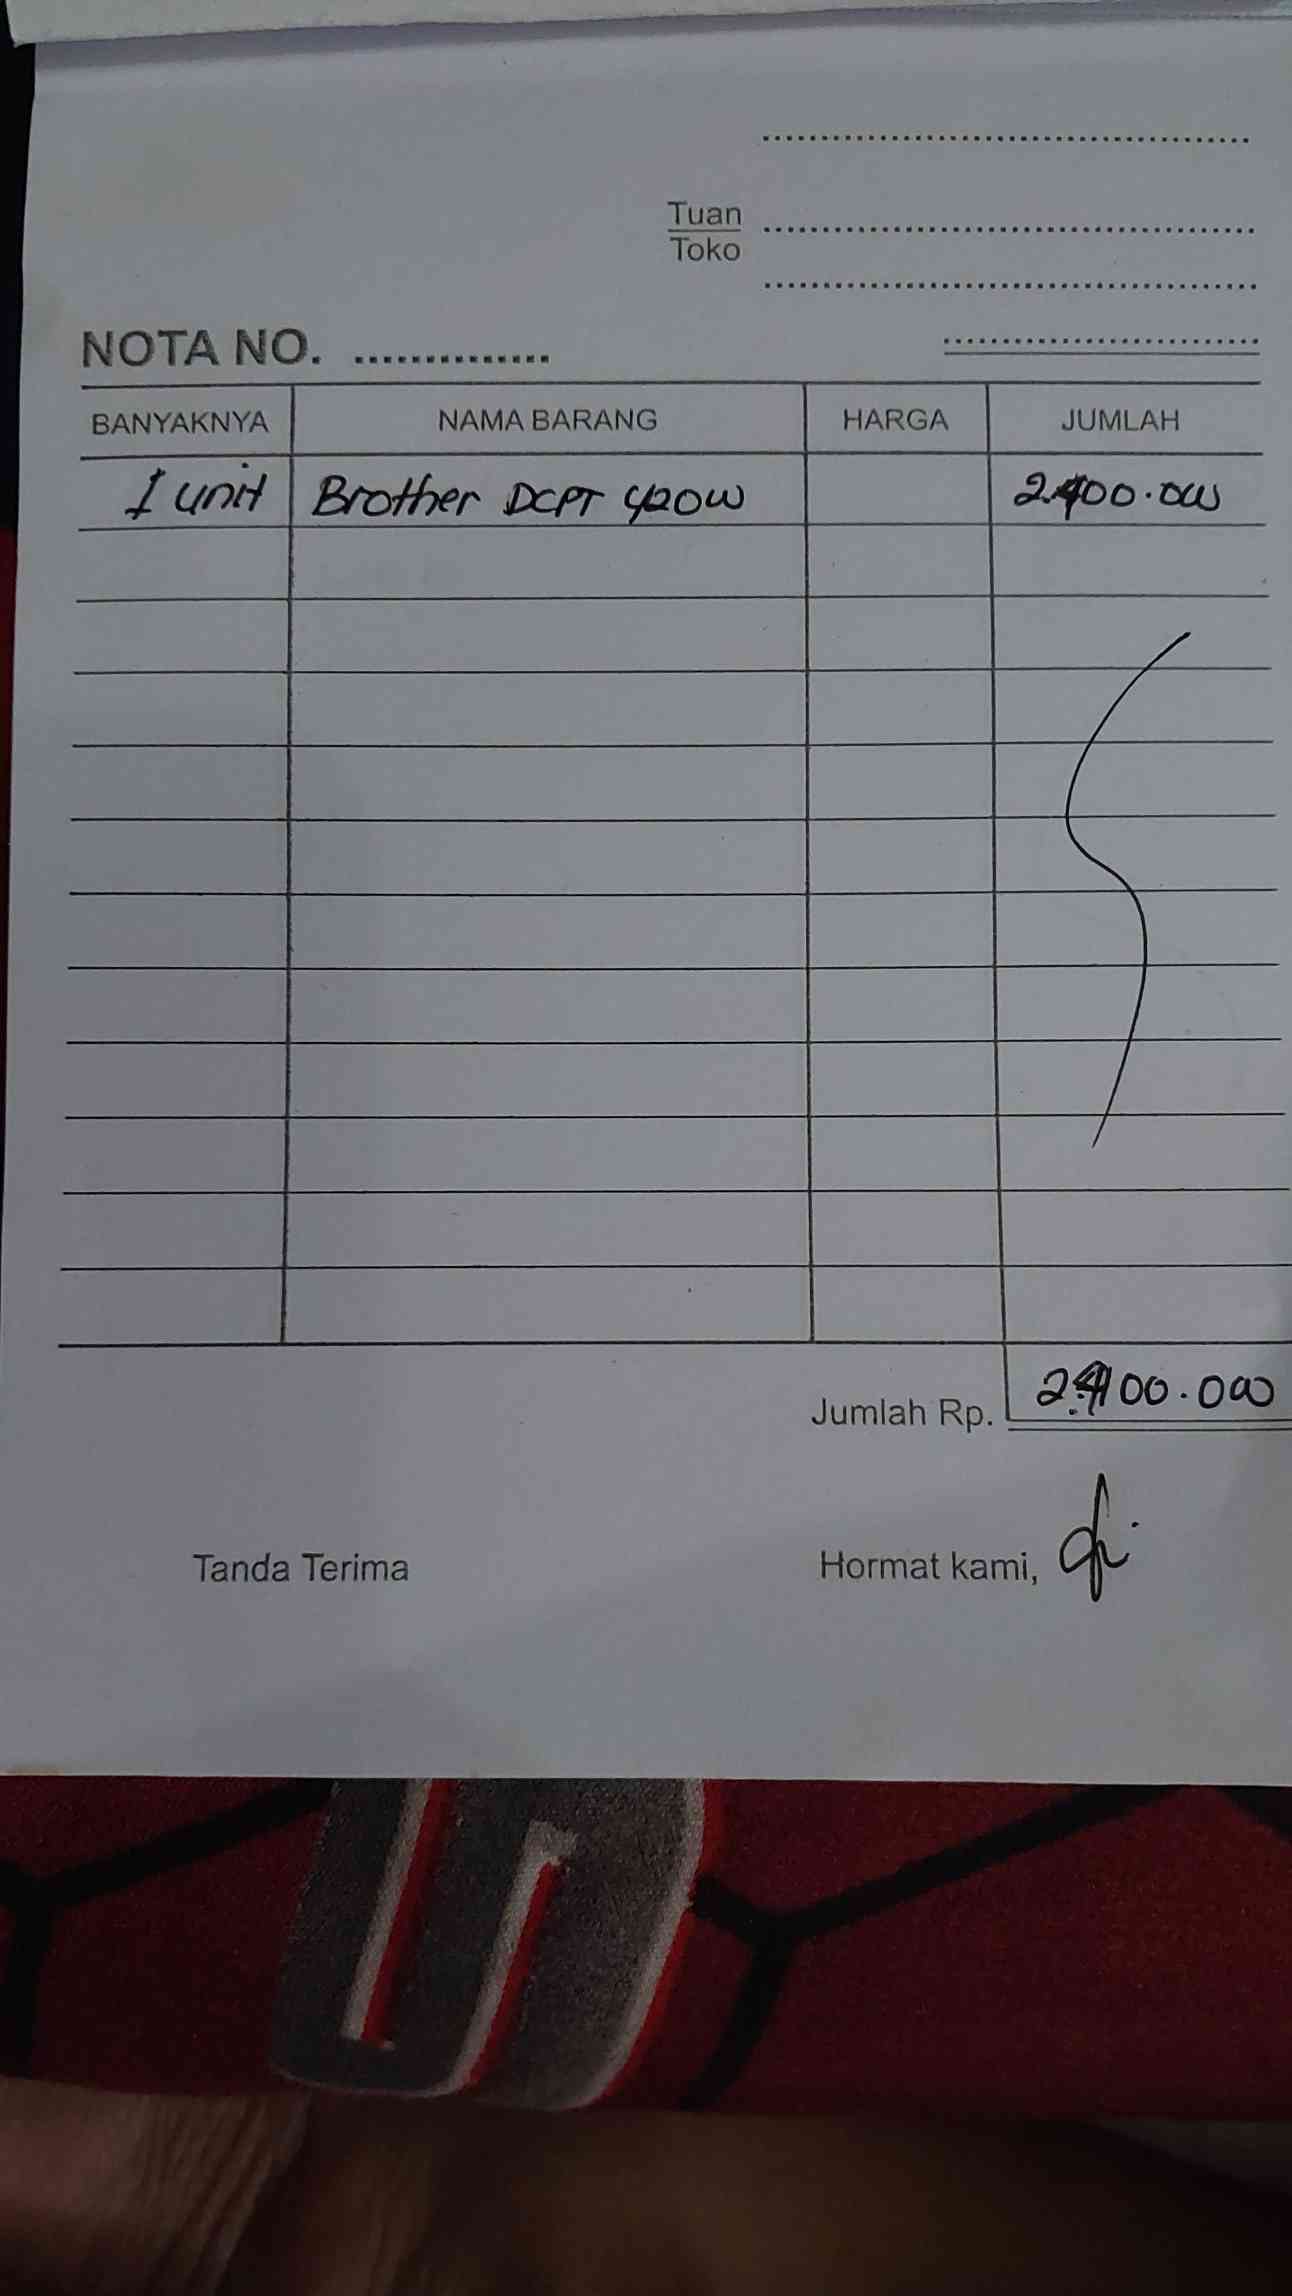 Tuan
Toko
NOTA NO. ..............
BANYAKNYA NAMA BARANG HARGA JUMLAH
1 unit Brother DCPT 420W 2.400.000
Jumlah Rp. 2.400.000
Tanda Terima Hormat kami,